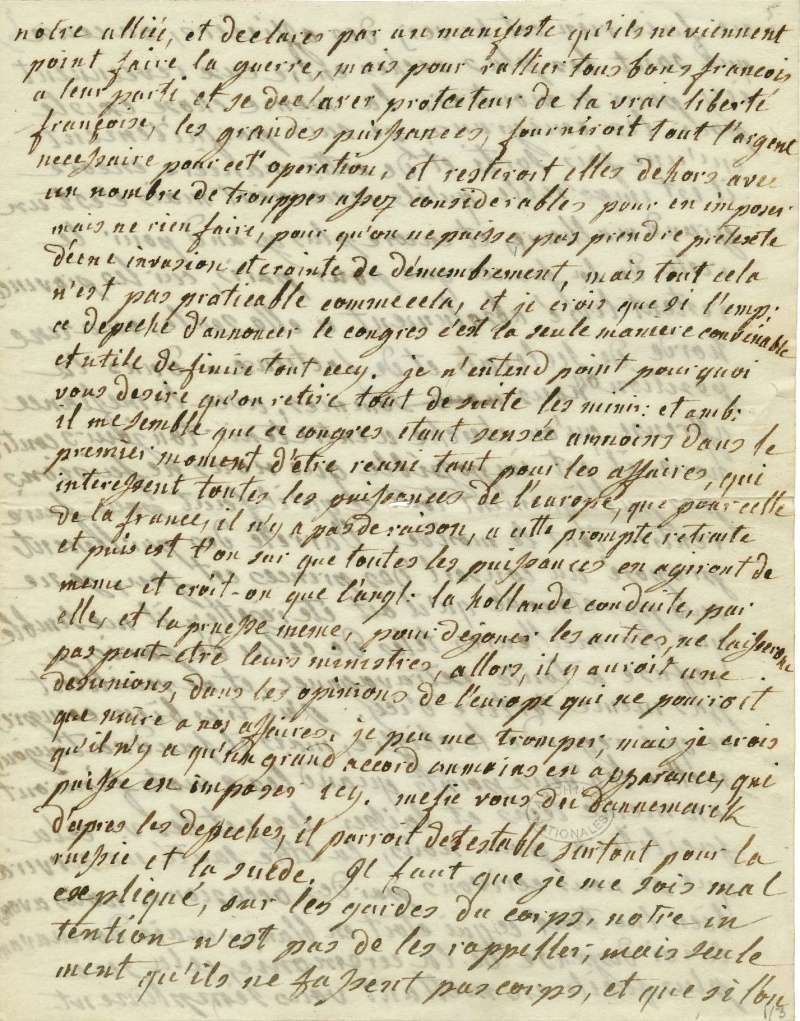 notre allié, et declares par un manifeste qu'ils ne viennent
point faire la guerre, mais pour rallier tous bons francois
a leur parti et se declarer protecteur de la vrai liberté
francoise, les grandes puissances, fourniroit tout l'argent
necessaire pour cet operation, et resteroit elles dehors avec
un nombre de trouppes assez considerables pour en imposer
mais ne rien faire, pour qu'on ne puisse, pas prendre pretexte
d'une invasion et crainte de démembrement, mais tout cela
n'est pas praticable comme cela, et je crois que si l'emp:
ce depeche d'annoncer le congres c'est la seule maniere convenable
et utile de finire tout cecy. je n'entend point pourquoi
vous desire qu'on retire tout de suite les mini: et amb:
il me semble que ce congres etant sensée aumoins dans le
premier moment d'être reuni tant pour les affaires, qui
interessent toutes les puissances de l'europe, que pour celle
de la france, il n'y a pas de raison, a cette prompte retraite
et puis est t'on sur que toutes les puissances en agiront de
meme et croit-on que l'angl: la hollande conduite, par
elle, et la prusse meme, pour déjouer les autres, ne laisseront
pas peut-etre leurs ministres, allors, il y auroit une
desunions, dans les opinions de l'europe qui ne pourroit
que nuire a nos affaires, je peu me tromper, mais je crois
qu'il n'y a qu'un grand accord aumoins en apparance, qui
puisse en imposer icy. mefie vous du dannemarck
dapres les depeches, il parroit detestable surtout pour la
russie et la suede. Il faut que je me sois mal
expliqué, sur les gardes du corps, notre in
tention n'est pas de les rappeller, mais seule
ment qu'ils ne fassent pas corps, et que si l'on